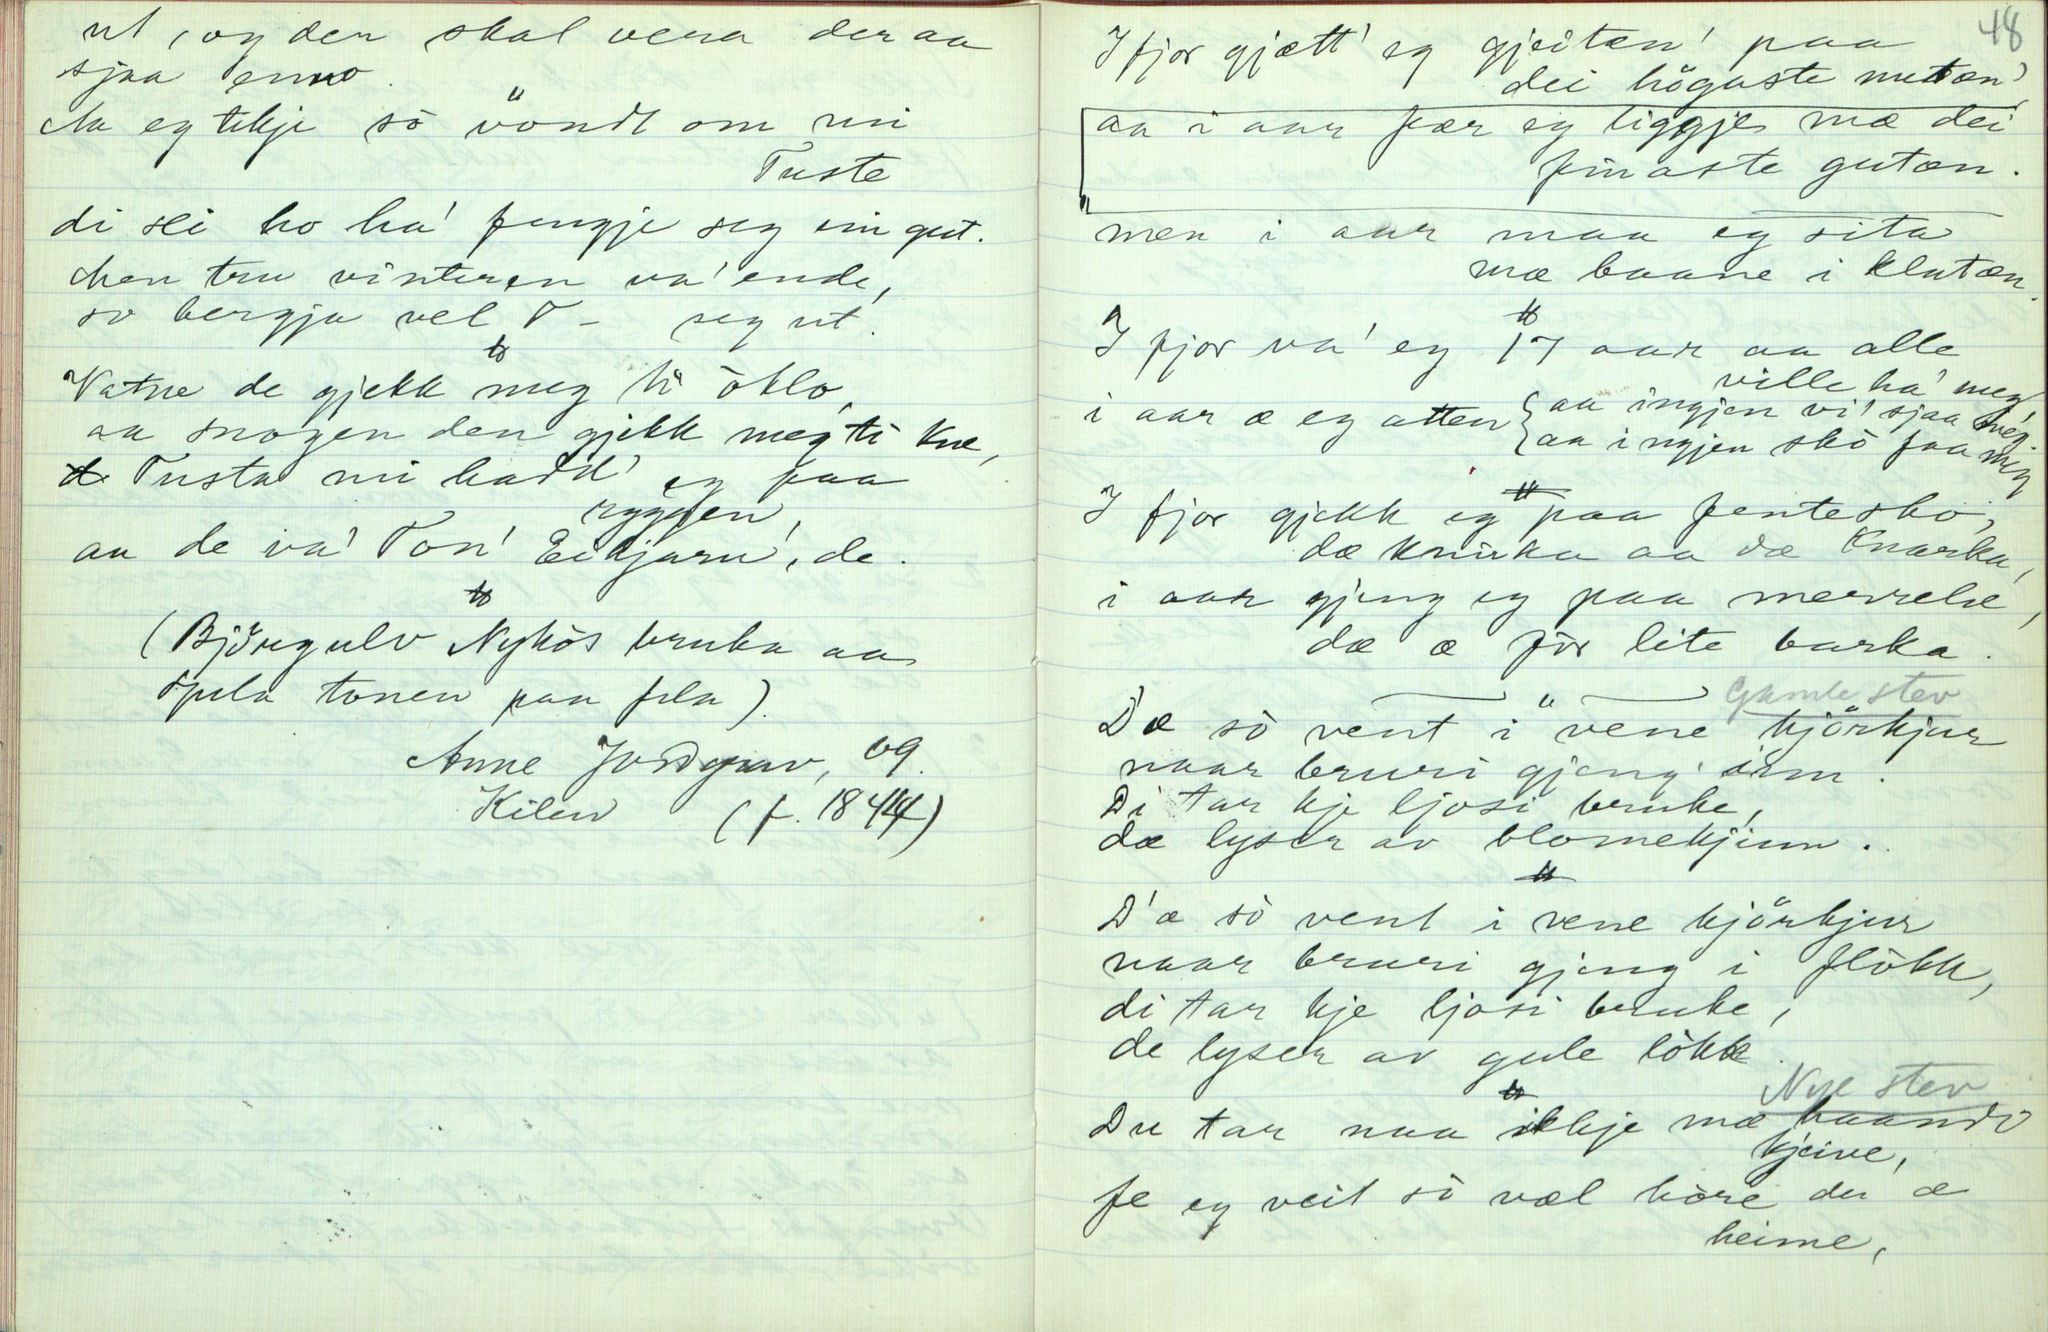 ut, og der skal vera der aa
sjaa enno.
"
Aa eg tikje sò vöndt om mi
Tuste
di sei ho ha' fengje seg ein gut.
Men tru vinteren va' ende,
so bergja vel T – seg ut.
"
Vatne de gjekk meg ti òklo,
aa snogen den gjekk meg ti kne,
Tusta mi hadd' eg paa
ryggen,
aa de va' Ton' Eikjaru', de.
"
(Bjørgulv Nykòs bruka aa
spela tonen paa fela).
Anne Jordgrav, 69.
Kilen (f. 1844)
48
I fjor gjætt' eg gjeitan' paa
dei högaste nutan',
aa i aar fær eg liggje mæ dei
finaste gutan.
"
men i aar maa eg sita
mæ baane i klutan.
"
I fjor va' eg 17 aar aa alle
ville ha' meg,
i aar æ eg atten aa ingjen vi' sjaa meg.
aa ingjen skò faa meg
"
I fjor gjekk eg paa jentesko,
dæ knirka aa dæ knarka,
i aar gjeng eg paa merrelæ,
dæ æ för lite barka.
"
Gamle stev
D'æ sò vent i vene kjörkjur
naar bruri gjeng inn.
Di tar kje ljosi bruke,
dæ lyser av blomekjinn.
"
D'æ sò vent i vene kjörkjur
naar bruri gjeng i flòkk,
di tar kje ljosi bruke,
de lyser av gule lòkk.
"
Nye stev
Du tar naa ikkje mæ haandò
kjeive,
fe eg veit sò væl hòre du æ
heime,